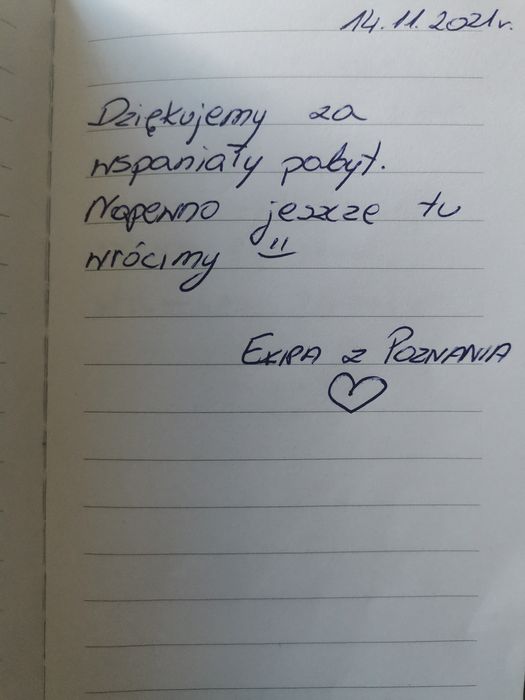 14.11.2021r.
Dziękujemy za
wspaniały pobyt.
Napewno jeszcze tu
wrócimy
Ekipa z Poznania